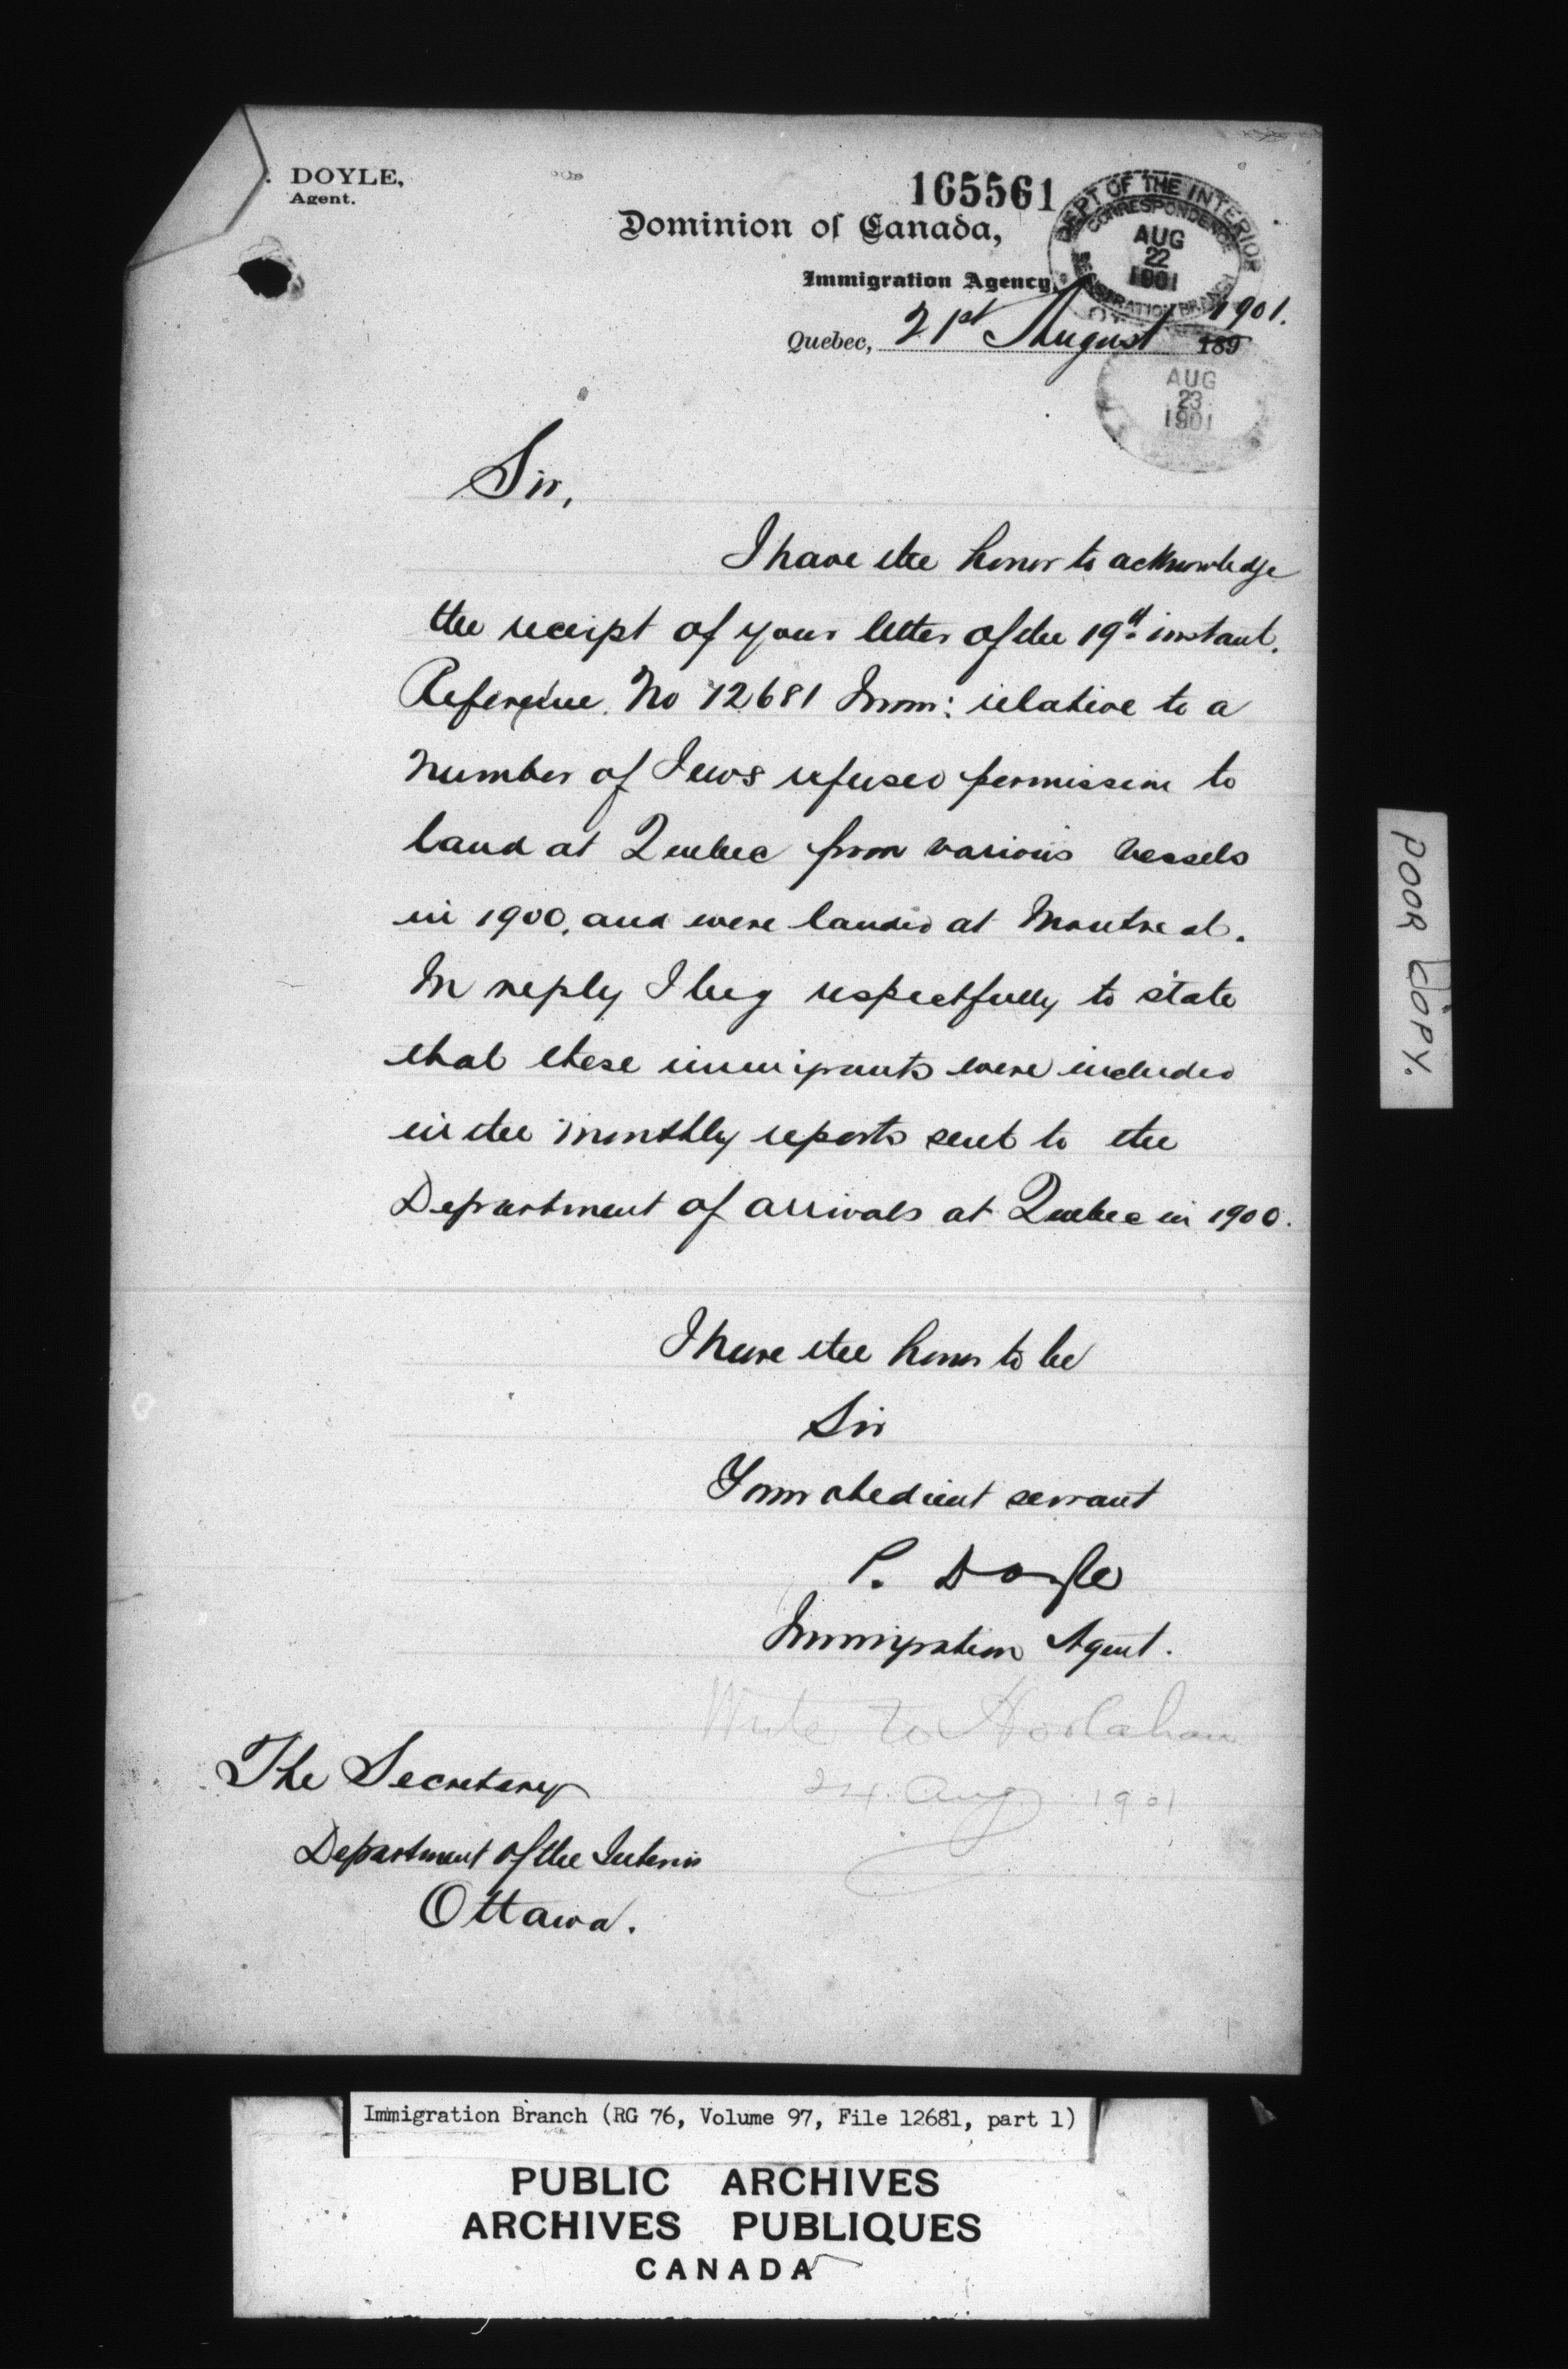 . DOYLE,
Agent.
165561
Dominion of Canada,
Immigration Agency,
DEPT OF THE INTERIOR
CORRESPONDENCE
AUG
22
1901
Quebec, 21st August 1901.
189
AUG
23
1901
Sir,
I have the honor to acknowledge
the receipt of your letter of the 19th instant.
Reference No 12681 Imm: relative to a
number of Jews refused permission to
land at Quebec from various vessels
in 1900, and were landed at Montreal.
In reply I beg respectfully to state
that these immigrants were included
in the monthly reports sent to the
Department of arrivals at Quebec in 1900.
I have the honor to be
Sir
Your obedient servant
P. Doyle
Immigration Agent.
Write to Hoolahan
24 Aug 1901
The Secretary
Department of the Interior
Ottawa.
POOR COPY.
Immigration Branch (RG 76, Volume 97, File 12681, part 1)
PUBLIC ARCHIVES
ARCHIVES PUBLIQUES
CANADA